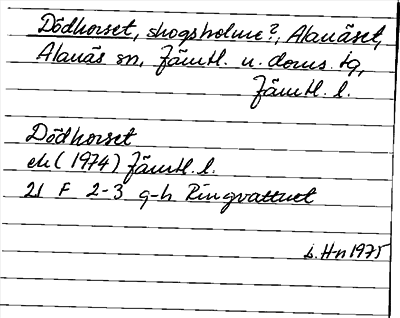 Dödhorset, skogsholme?, Alanäset,
Alanäs sn, Jämtl. n. doms. tg,
Jämtl. l.
Dödhorset
ek (1974) Jämtl. l.
21 F 2-3 g-h Ringvattnet
B. H-n 1975